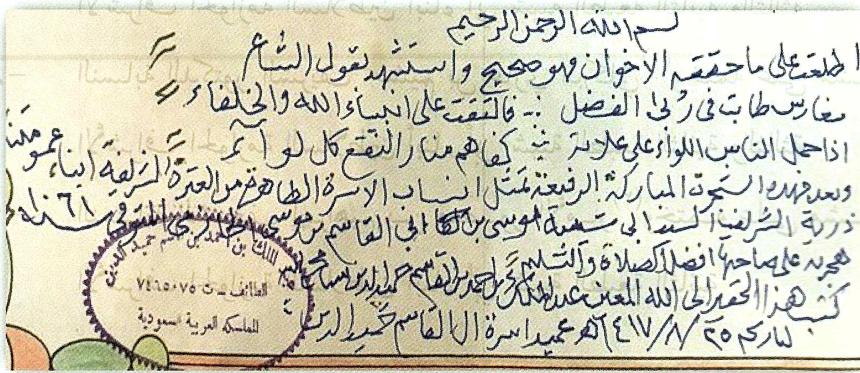 بسم الله الرحمن الرحيم
اطلعت على ما حققه الاخوان وهو صحيح واستشهد بقول الشاعر
مغارس طابت في ربى الفضل فالتقت على انبياء الله والخلفاء
اذا حمل الناس اللواء علامة كفاهم مثار النقع كل لواء
وبعد فهذه الشجرة المباركة الرفيعة تمثل انساب الاسرة الطاهرة من العترة الشريفة ابناء عمومتنا
ذرية الشريف السيد الى القاسم بن موسى المتوفي سنة ١٠٦١
هجرية على صاحبها افضل الصلاة والتسليم
كتب هذا الحقير الى الله المعان عبد الملك بن احمد بن القاسم حميد الدين
بتاريخ ٢٥/٨/١٤١٧هـ عميد اسرة ال القاسم حميد الدين
الملك بن احمد بن قاسم حميد الدين
الطائف ت ٧٤٦٥٠٧٥
المملكة العربية السعودية